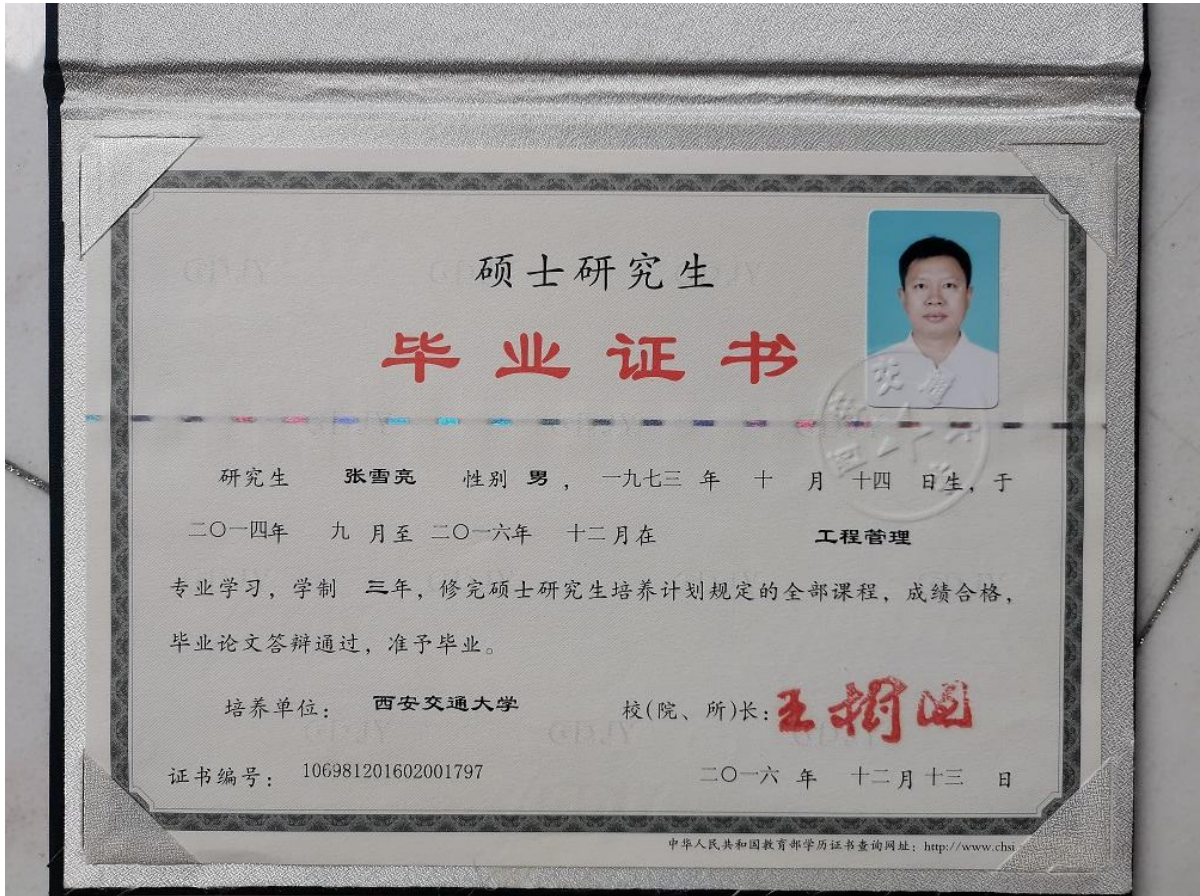 硕士研究生
毕业证书
研究生 张雪亮 性别 男， 一九七三 年 十 月 十四 日生，于
二〇一四年 九 月至 二〇一六年 十二月在 工程管理
专业学习，学制 三年，修完硕士研究生培养计划规定的全部课程，成绩合格，
毕业论文答辩通过，准予毕业。
培养单位： 西安交通大学 校(院、所)长：王树国
证书编号： 106981201602001797 二〇一六 年 十二月十三 日
中华人民共和国教育部学历证书查询网址：http://www.chsi